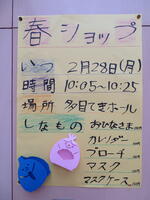 春ショップ
いつ 2月28日(月)
時間 10:05~10:25
場所 多目てきホール
しなもの おひなさま
カレンダー
ブローチ
マスク
マスクケース